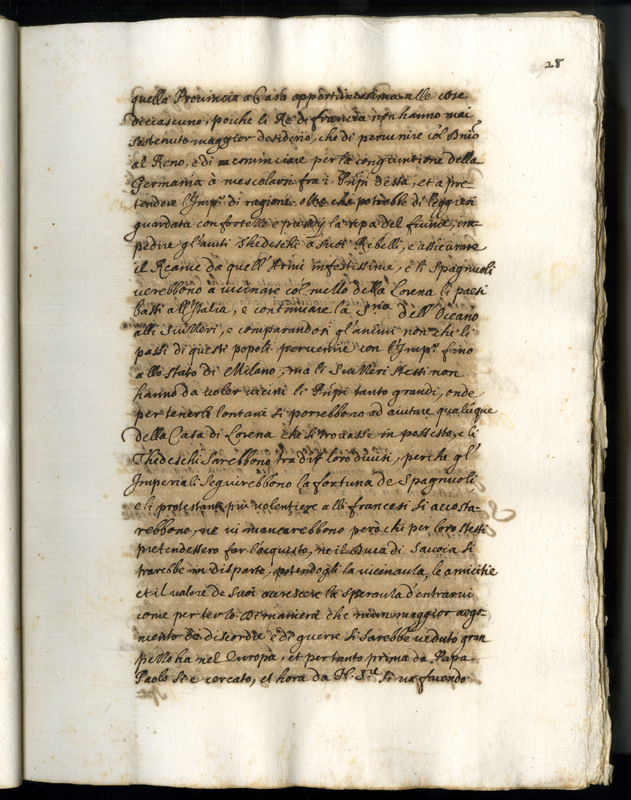 28
quella Provincia a Casa opportunissima alle cose
di ciascuno, poiche li Rè di francia non hanno mai
sostenuto maggior desiderio, che di pervenire col Dnio
al Reno, e di cominciare per la congiuntione della
Germania à mescolarsi fra i Pnpi d'essa, et a pre-
tendere l'Impo di ragione, oltre che potrebbe di leggieri
guardata con fortezze e presidij la ripa del fiume, im-
pedire gl'aiuti Thedeschi a suoi Ribelli, e assicurare
il Reame da quell'Armi infestissime, e li Spagnuoli
verebbono a vicinare col mezzo della Lorena li paesi
bassi all'Italia, e continuare la Sria dell'Oceano
alli Suizzeri, e comparandosi gl'animi non che li
passi di questi popoli pervenire con l'Impo fino
allo stato di Milano, ma li Suizzeri stessi non
hanno da voler vicini li Pnpi tanto grandi, onde
per tenerli lontani si porrebbono ad aiutare qualuque
della Casa di Lorena che si trovasse in possesso, e li
Thedeschi sarebbono tra di loro divisi, perche gl'
Imperiali seguirebbono la fortuna de Spagnuoli
e li protestanti più volentiere alli francesi si accosta-
rebbono, ne vi mancarebbono però chi per loro stessi
pretendessero far l'acquisto, ne il Duca di Savoia si
starebbe in disparte, potendogli la vicinanza, le amicitie
et il valore de suoi accrescere la speranza d'entrarvi
come per terzo di maniera che niun maggior argo-
mento da discordie e di guerre si sarebbe veduto gran
pezzo ha nel Europa, et per tanto prima da Papa
Paolo si e cercato, et hora da N. Sre si va facendo